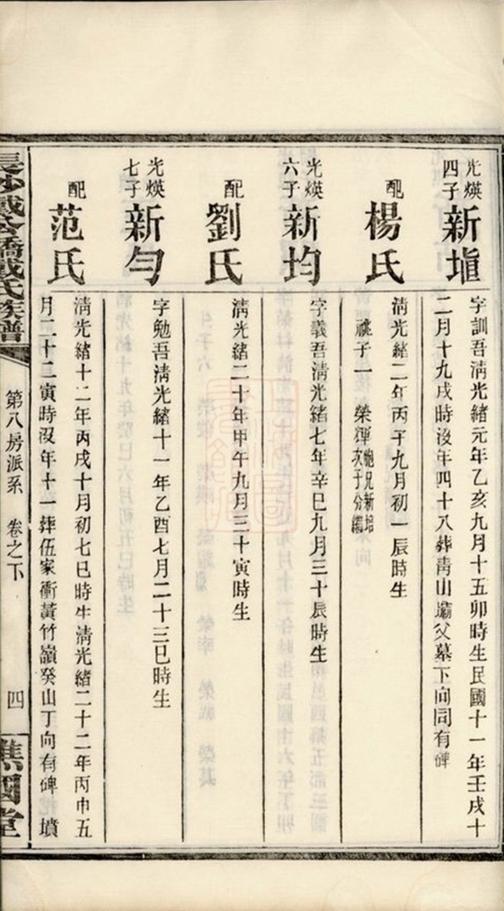 光煐四子新塤
字訓吾清光緒元年乙亥九月十五卯時生民國十一年壬戌十
二月十九戌時沒年四十八葬靑山壩父墓下向同有碑
配楊氏
清光緒二年丙子九月初一辰時生
祧子一 榮彈胞兄新培次子分繼
光煐六子新均
字義吾清光緒七年辛巳九月三十辰時生
配劉氏
清光緒二十年甲午九月三十寅時生
光煐七子新勻
字勉吾清光緒十一年乙酉七月二十三巳時生
配范氏
清光緒十二年丙戌十月初七巳時生清光緒二十二年丙申五
月二十二寅時沒年十一葬伍家衝黃竹嶺癸山丁向有碑墳
長沙戴公橋戴氏族譜
第八房派系 卷之下
四
譙國堂